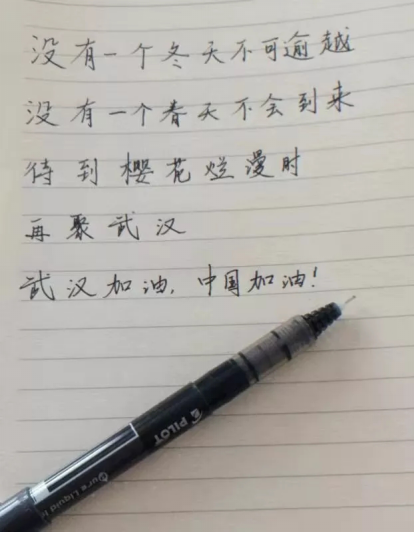 没有一个冬天不可逾越
没有一个春天不会到来
待到樱花烂漫时
再聚武汉
武汉加油,中国加油!
PILOT
Pure Liquid In